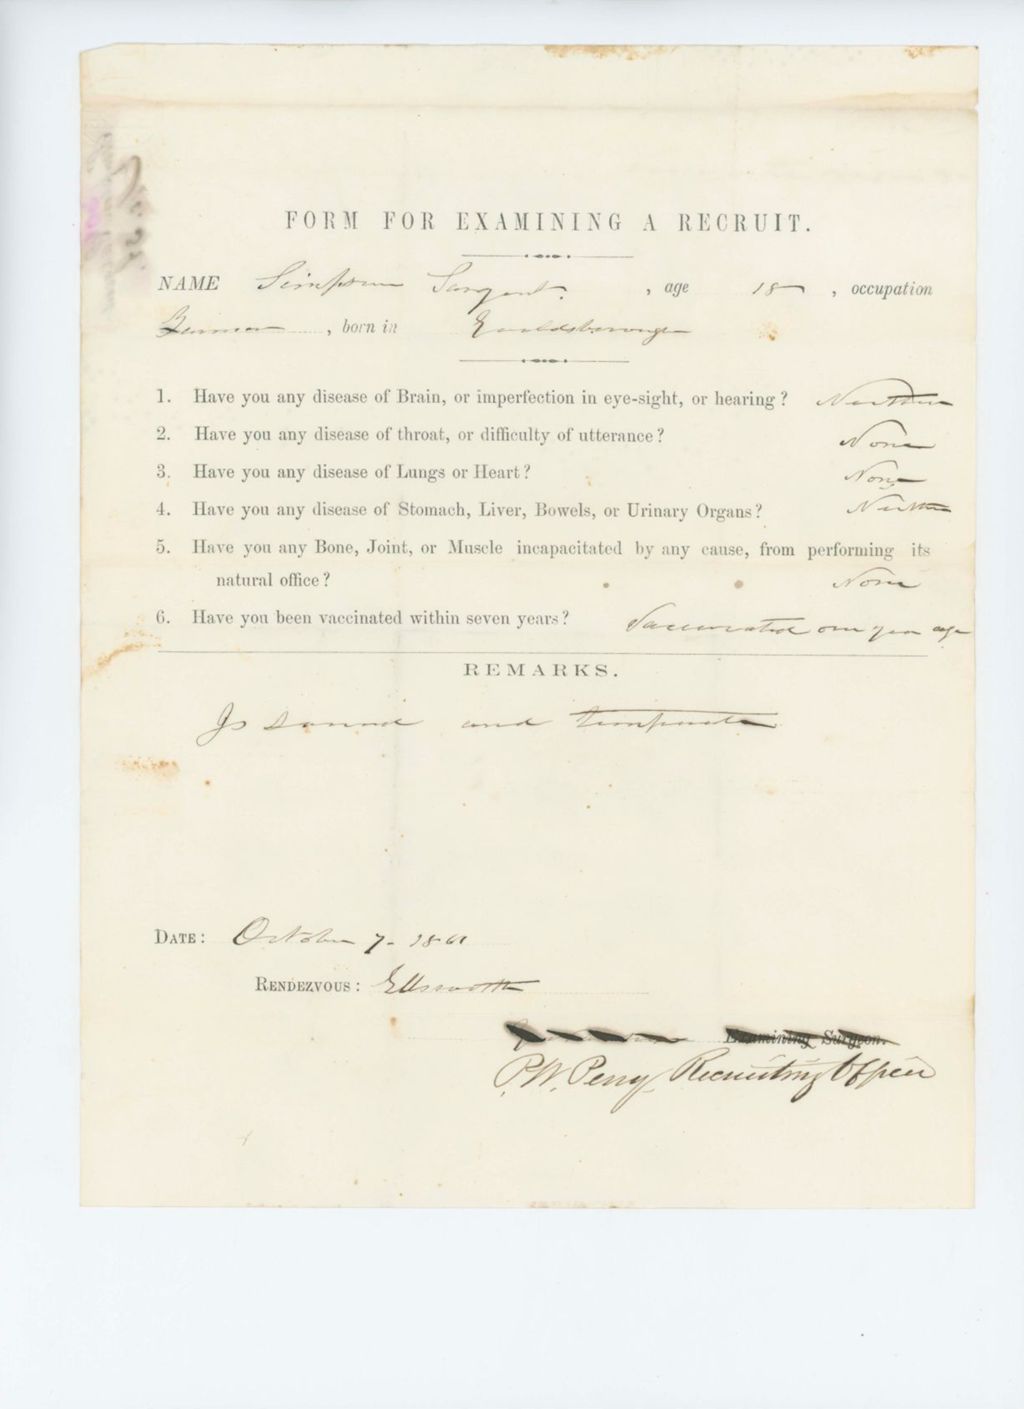 FORM FOR EXAMINING A RECRUIT.
NAME Simpson Sargent. , age 18 , occupation
, born in Gouldsborough
1. Have you any disease of Brain, or imperfection in eye-sight, or hearing? Neither
2. Have you any disease of throat, or difficulty of utterance? None
3. Have you any disease of Lungs or Heart? None
4. Have you any disease of Stomach, Liver, Bowels, or Urinary Organs? Neither
5. Have you any Bone, Joint, or Muscle incapacitated by any cause, from performing its
natural office? None
6. Have you been vaccinated within seven years? Vaccinated one year ago
REMARKS.
Is sound and temperate
DATE: October 7 - 1861
RENDEZVOUS: Ellsworth
Examining Surgeon.
P.W. Perry Recruiting Officer